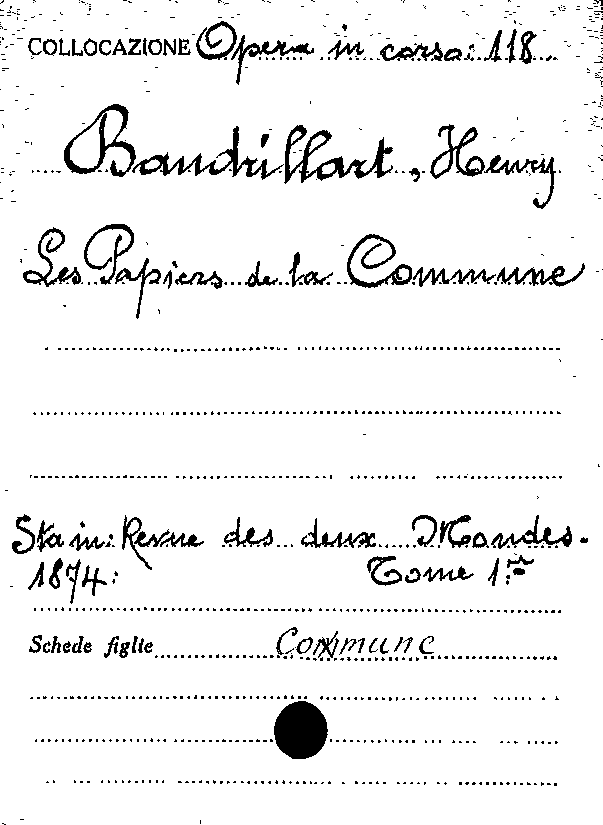 COLLOCAZIONE Opera in corso: 118.
Baudrillart, Henry
Les Papiers de la Commune
Sta in: Revue des deux Mondes.
1874: Tome 1.er
Schede figlie Commune